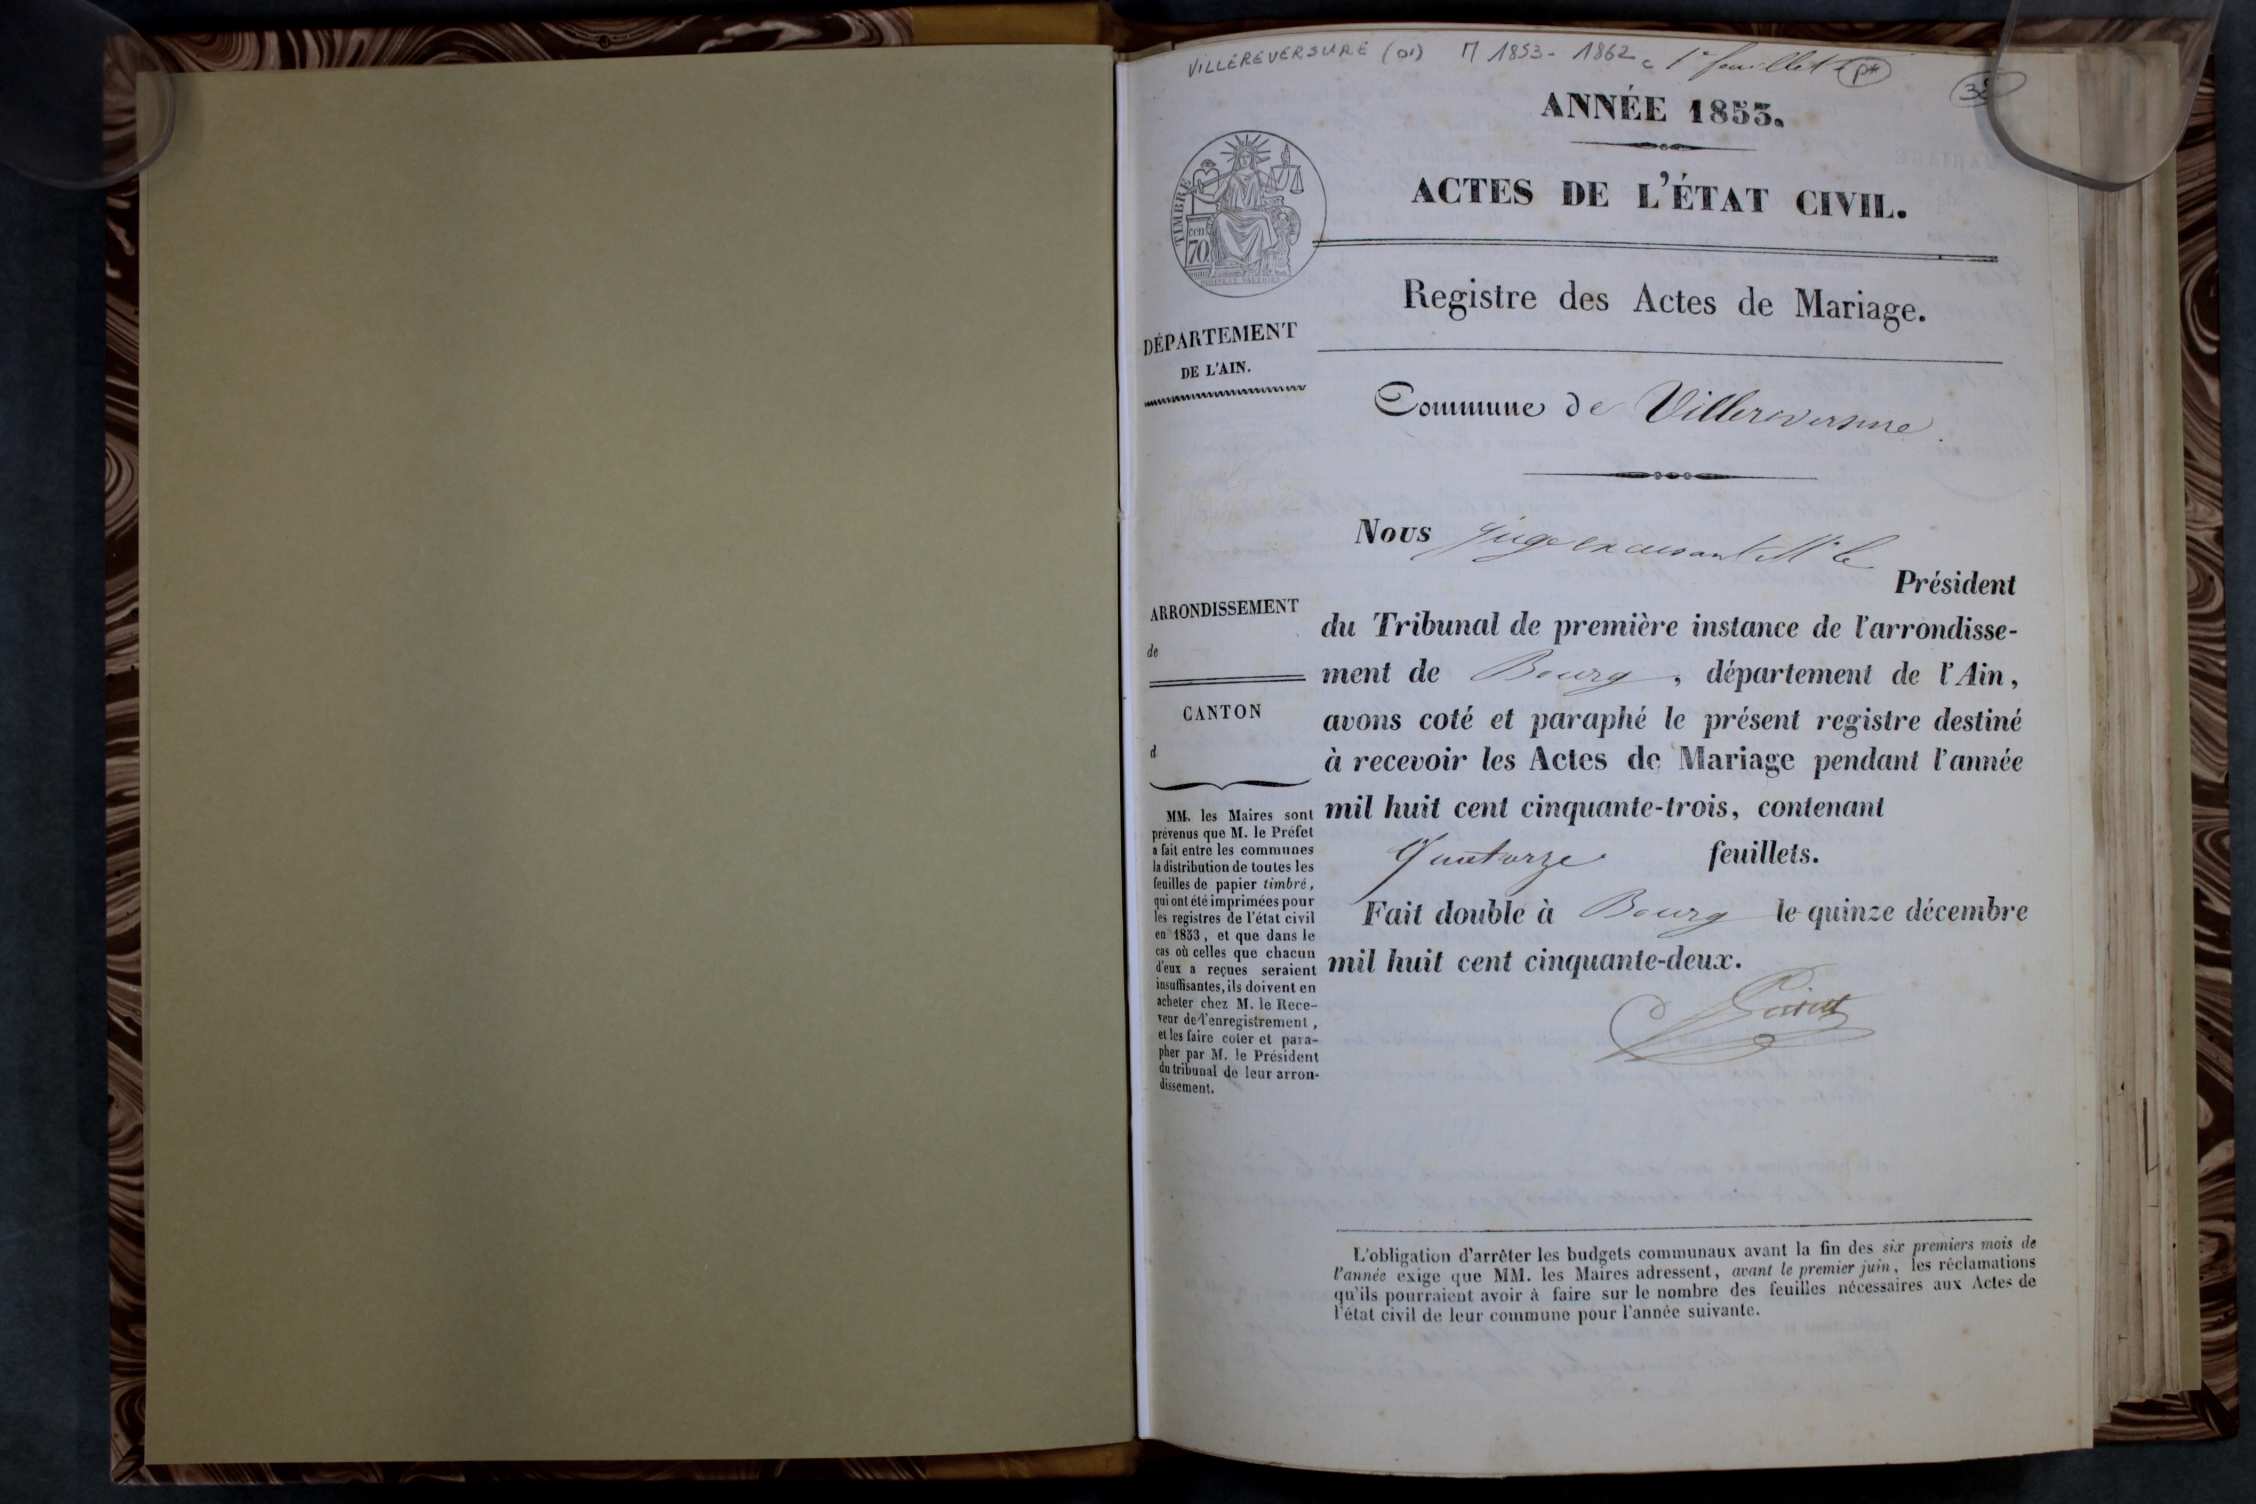 VILLEREVERSURE (01) M 1853 - 1862 1er feuillet
ANNÉE 1853.
ACTES DE L'ÉTAT CIVIL.
TIMBRE
70
Registre des Actes de Mariage.
DÉPARTEMENT
DE L'AIN.
Commune de Villereversure
Nous Juge excusant Mr le
Président
du Tribunal de première instance de l'arrondisse-
ment de Bourg, département de l'Ain,
avons coté et paraphé le présent registre destiné
à recevoir les Actes de Mariage pendant l'année
mil huit cent cinquante-trois, contenant
Quatorze feuillets.
Fait double à Bourg le quinze décembre
mil huit cent cinquante-deux.
ARRONDISSEMENT
de
CANTON
d
MM. les Maires sont
prévenus que M. le Préfet
a fait entre les communes
la distribution de toutes les
feuilles de papier timbré,
qui ont été imprimées pour
les registres de l'état civil
en 1853, et que dans le
cas où celles que chacun
d'eux a reçues seraient
insuffisantes, ils doivent en
acheter chez M. le Rece-
veur de l'enregistrement,
et les faire coter et para-
pher par M. le Président
du tribunal de leur arron-
dissement.
L'obligation d'arrêter les budgets communaux avant la fin des six premiers mois de
l'année exige que MM. les Maires adressent, avant le premier juin, les réclamations
qu'ils pourraient avoir à faire sur le nombre des feuilles nécessaires aux Actes de
l'état civil de leur commune pour l'année suivante.